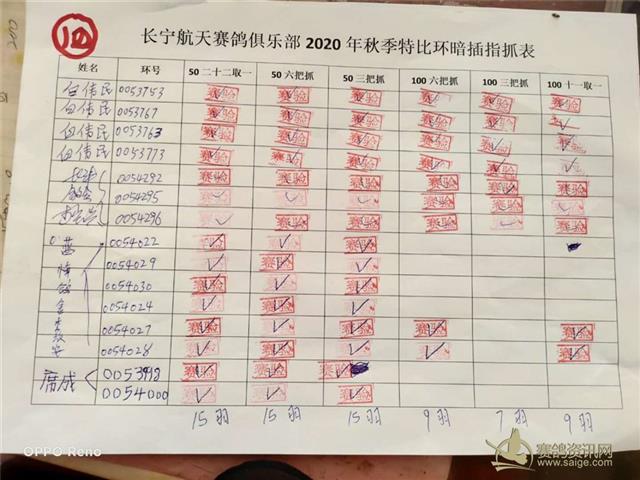 10
长宁航天赛鸽俱乐部 2020 年秋季特比环暗插指抓表
姓名 环号 50 二十二取一 50 六把抓 50 三把抓 100 六把抓 100 三把抓 100 十一取一
白伟民 0053753 赛验 赛验 赛验 赛验 赛验 赛验
白伟民 0053767 赛验 赛验 赛验 赛验 赛验
白伟民 0053763 赛验 赛验 赛验 赛验 赛验 赛验
白伟民 0053773 赛验 赛验 赛验 赛验 赛验
0054292 赛验 赛验 赛验 赛验 赛验 赛验
0054295 赛验
0054296 赛验 赛验 赛验 赛验 赛验
0054022 赛验 赛验
0054029 赛验 赛验 赛验
0054030 赛验 赛验
0054024
0054027 赛验 赛验 赛验 赛验
0054028 赛验 赛验 赛验 赛验
席成 赛验 赛验 赛验
0054000
15羽 15羽 15羽 9羽 7羽 9羽
OPPO Reno
赛鸽资讯网
www.saige.com